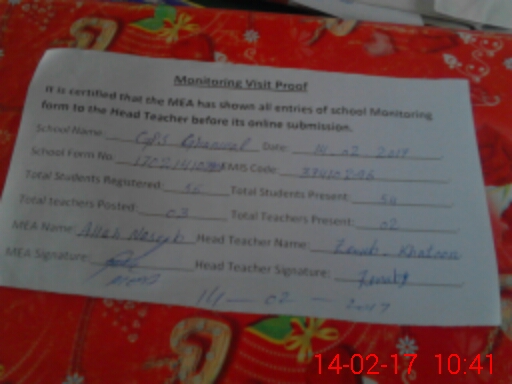 Monitoring Visit Proof
It is certified that the MEA has shown all entries of school Monitoring
form to the Head Teacher before its online submission.
School Name: GPS Date: 14-02-2017
School Form No. EMIS Code:
Total Students Registered: 56 Total Students Present: 54
Total teachers Posted: 03 Total Teachers Present: 02
MEA Name: Allah Head Teacher Name: Zainab Khatoon
MEA Signature: Head Teacher Signature: Zainab
14-02-2017
14-02-17 10:41